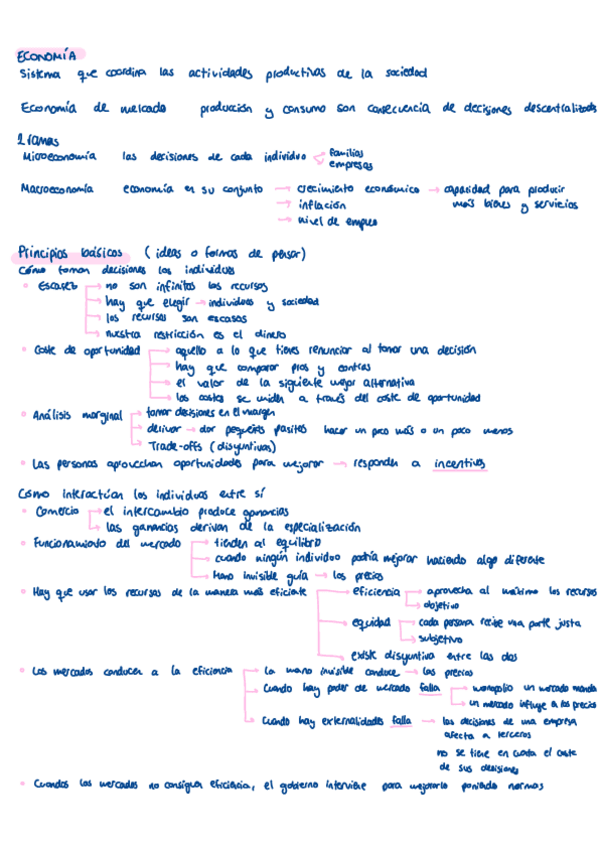 ECONOMÍA
Sistema que coordina las actividades productivas de la sociedad
Economía de mercado producción y consumo son consecuencia de decisiones descentralizadas
2 ramas
Microeconomía las decisiones de cada individuo familias
empresas
Macroeconomía economía en su conjunto → crecimiento económico → capacidad para producir
más bienes y servicios
→ inflación
→ nivel de empleo
Principios básicos (ideas o formas de pensar)
Cómo toman decisiones los individuos
• Escasez → no son infinitos los recursos
→ hay que elegir → individuos y sociedad
→ los recursos son escasos
→ nuestra restricción es el dinero
• Coste de oportunidad → aquello a lo que tienes renunciar al tomar una decisión
→ hay que comparar pros y contras
→ el valor de la siguiente mejor alternativa
→ los costes se miden a través del coste de oportunidad
• Análisis marginal → tomar decisiones en el margen
→ derivar → dar pequeños pasitos hacer un poco más o un poco menos
→ Trade-offs (disyuntivas)
• Las personas aprovechan oportunidades para mejorar → responden a incentivos
Cómo interactúan los individuos entre sí
• Comercio → el intercambio produce ganancias
→ las ganancias derivan de la especialización
• Funcionamiento del mercado → tienden al equilibrio
→ cuando ningún individuo podría mejorar haciendo algo diferente
→ Mano invisible guía → los precios
• Hay que usar los recursos de la manera más eficiente → eficiencia → aprovecha al máximo los recursos
→ objetivo
→ equidad → cada persona recibe una parte justa
→ subjetivo
→ existe disyuntiva entre las dos
• Los mercados conducen a la eficiencia → la mano invisible conduce → los precios
→ Cuando hay poder de mercado falla → monopolio un mercado manda
→ un mercado influye a los precios
→ Cuando hay externalidades falla → las decisiones de una empresa
afecta a terceros
no se tiene en cuenta el coste
de sus decisiones
• Cuando los mercados no consigua eficiencia, el gobierno interviene para mejorarlo poniendo normas